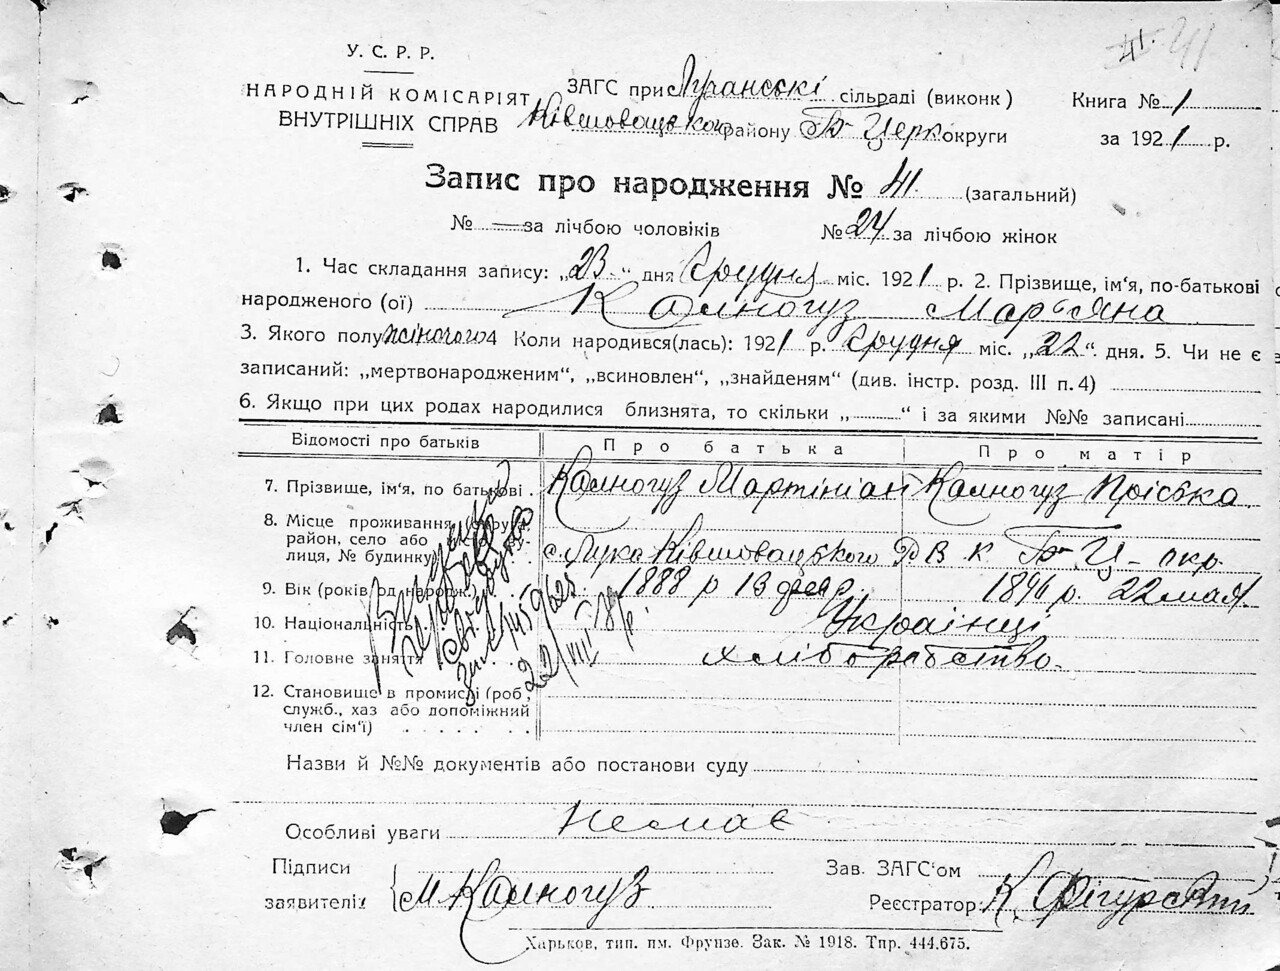 41
У. С. Р. Р.
НАРОДНІЙ КОМІСАРІЯТ
ВНУТРІШНІХ СПРАВ
ЗАГС при Лучанські сільраді (виконк)
Ківшоватського району Б-Церк округи
Книга № 1
за 1921 р.
Запис про народження № 41. (загальний)
№ — за лічбою чоловіків № 24 за лічбою жінок
1. Час складання запису: „23“ дня Грудня міс. 1921 р. 2. Прізвище, ім‘я, по-батькові
народженого (ої) Калногуз Мар‘яна
3. Якого полу жіночого 4 Коли народився(лась): 1921 р. Грудня міс. „22“ дня. 5. Чи не є
записаний: „мертвонародженим“, „всиновлен“, „знайденям“ (див. інстр. розд. III п. 4)
6. Якщо при цих родах народилися близнята, то скільки „ “ і за якими №№ записані
Відомості про батьків Про батька Про матір
7. Прізвище, ім‘я. по батькові Калногуз Мартініан Калногуз Пріська
8. Місце проживання
район, село або
лиця, № будинку) с. Лука Ківшоватького Р В К Б-Ц- окр.
9. Вік (років од народж.) 1888 р 13 1896 р. 22 мая
10. Національність Українці
11. Головне заняття хліборобство.
12. Становище в промислі (роб,
служб., хаз або допоміжний
член сім‘ї)
22/VIII
Назви й №№ документів або постанови суду
Особливі уваги Немає
Підписи
заявителів М Калногуз
Зав. ЗАГС‘ом
Реєстратор К. Фігурський
Харьков, тип. им. Фрунзе. Зак. № 1918. Тпр. 444.675.